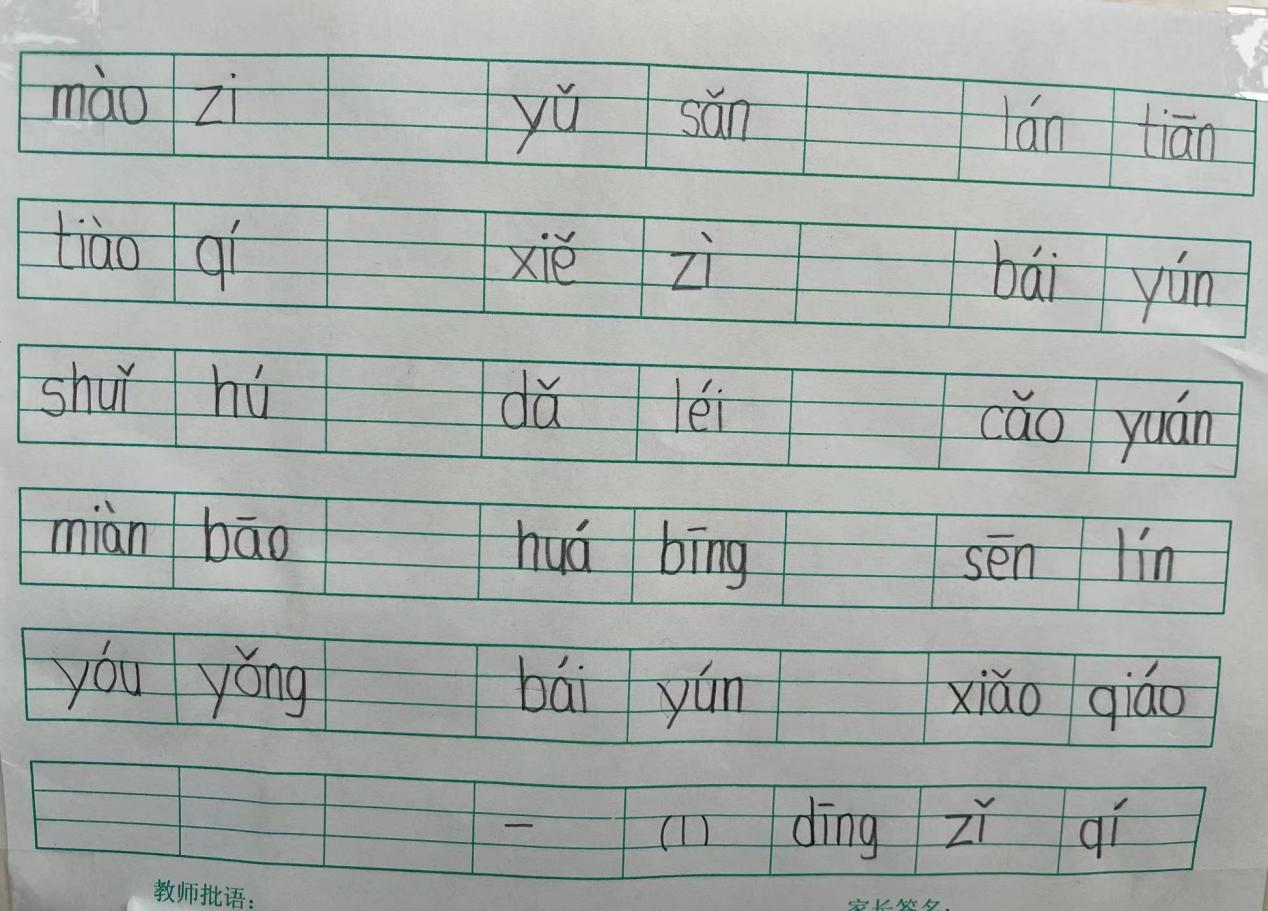 mào zi yǔ sǎn lán tiān
tiào qí xiě zì bái yún
shuǐ hú dǎ léi cǎo yuán
miàn bāo huá bīng sēn lín
yóu yǒng bái yún xiǎo qiáo
一 (1) dīng zǐ qí
教师批语: 家长签名: